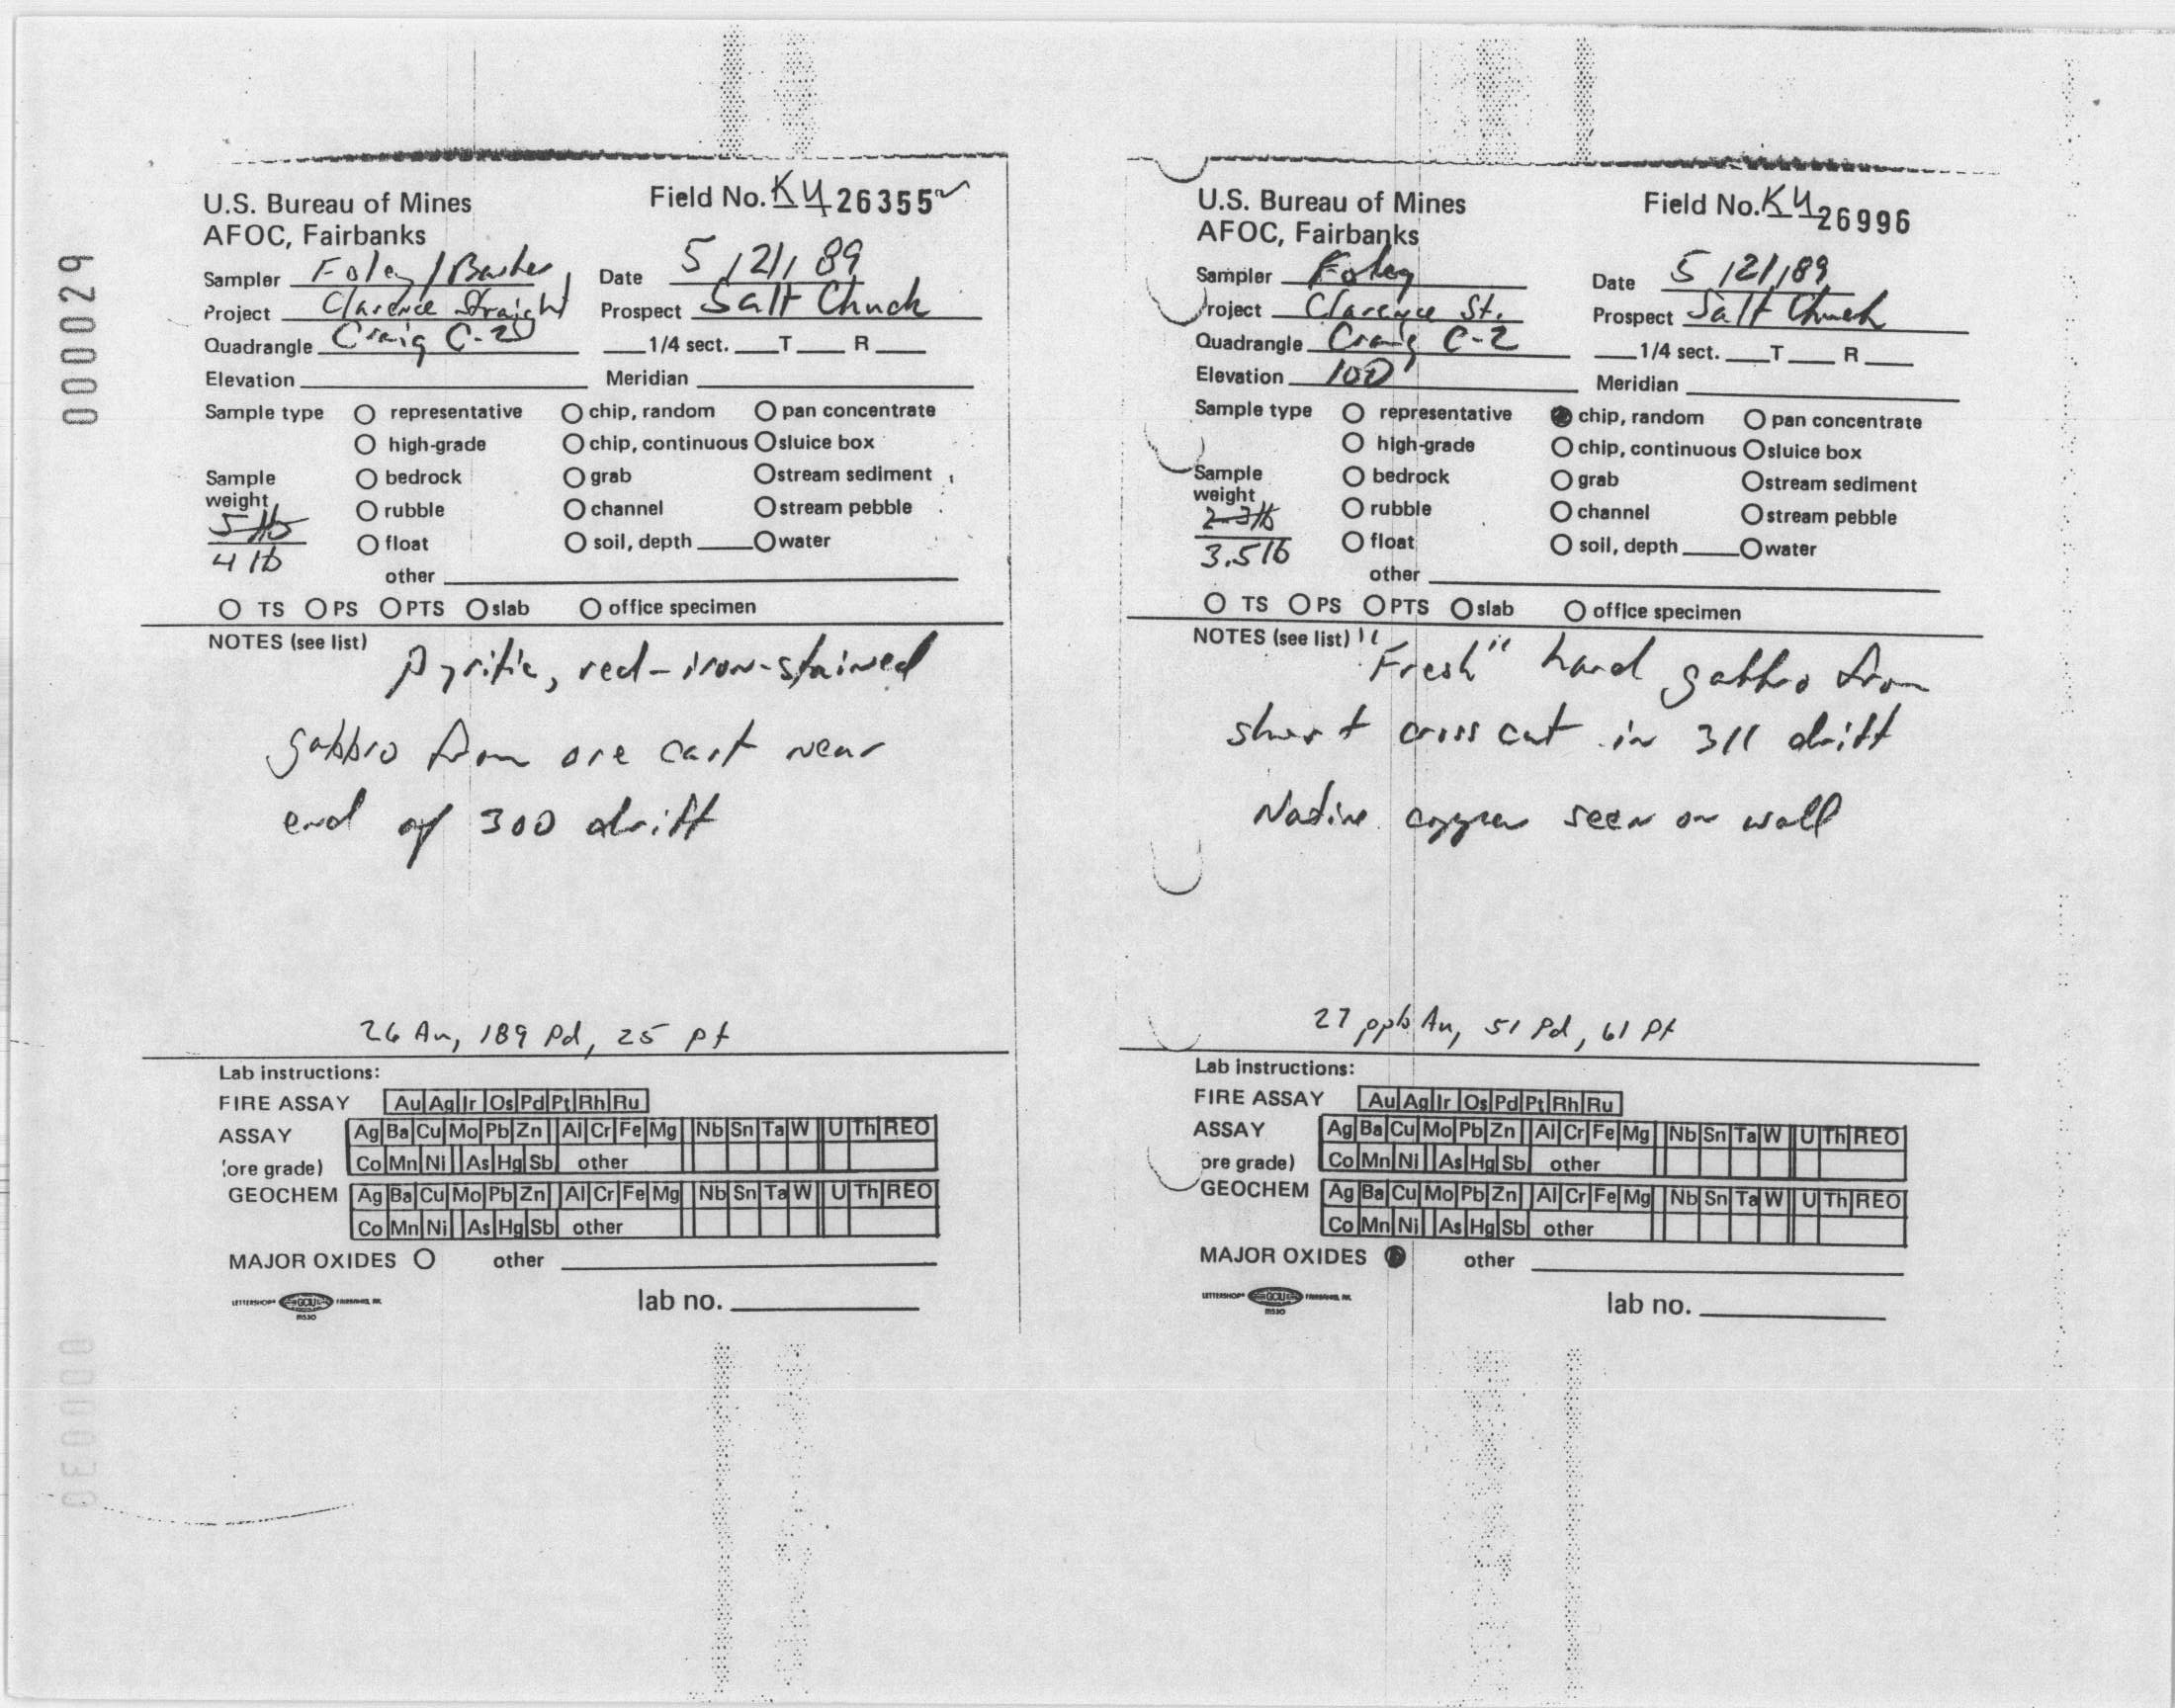 000029
U.S. Bureau of Mines
AFOC, Fairbanks
Field No. KY 26355
Sampler Foley / Barker
Date 5 / 21 / 89
Project Clarence Straight
Prospect Salt Chuck
Quadrangle Craig C-2
1/4 sect. T R
Elevation
Meridian
Sample type representative chip, random pan concentrate
high-grade chip, continuous sluice box
Sample weight bedrock grab stream sediment
5 lb rubble channel stream pebble
4 lb float soil, depth water
other
TS PS PTS slab office specimen
NOTES (see list)
Pyritic, red-iron-stained
gabbro from ore cart near
end of 300 drift
26 Au, 189 Pd, 25 Pt
Lab instructions:
FIRE ASSAY Au Ag Ir Os Pd Pt Rh Ru
ASSAY Ag Ba Cu Mo Pb Zn Al Cr Fe Mg Nb Sn Ta W U Th REO
(ore grade) Co Mn Ni As Hg Sb other
GEOCHEM Ag Ba Cu Mo Pb Zn Al Cr Fe Mg Nb Sn Ta W U Th REO
Co Mn Ni As Hg Sb other
MAJOR OXIDES other
LETTERSHOP GCIU FAIRBANKS, AK.
lab no.
U.S. Bureau of Mines
AFOC, Fairbanks
Field No. KY 26996
Sampler Foley
Date 5 / 21 / 89
Project Clarence St.
Prospect Salt Chuck
Quadrangle Craig C-2
1/4 sect. T R
Elevation 100'
Meridian
Sample type representative chip, random pan concentrate
high-grade chip, continuous sluice box
Sample weight bedrock grab stream sediment
2-3 lb rubble channel stream pebble
3.5 lb float soil, depth water
other
TS PS PTS slab office specimen
NOTES (see list)
"Fresh" hard gabbro from
short cross cut in 311 drift
Native copper seen on wall
27 ppb Au, 51 Pd, 61 Pt
Lab instructions:
FIRE ASSAY Au Ag Ir Os Pd Pt Rh Ru
ASSAY Ag Ba Cu Mo Pb Zn Al Cr Fe Mg Nb Sn Ta W U Th REO
ore grade) Co Mn Ni As Hg Sb other
GEOCHEM Ag Ba Cu Mo Pb Zn Al Cr Fe Mg Nb Sn Ta W U Th REO
Co Mn Ni As Hg Sb other
MAJOR OXIDES other
LETTERSHOP GCIU FAIRBANKS, AK.
lab no.
000030